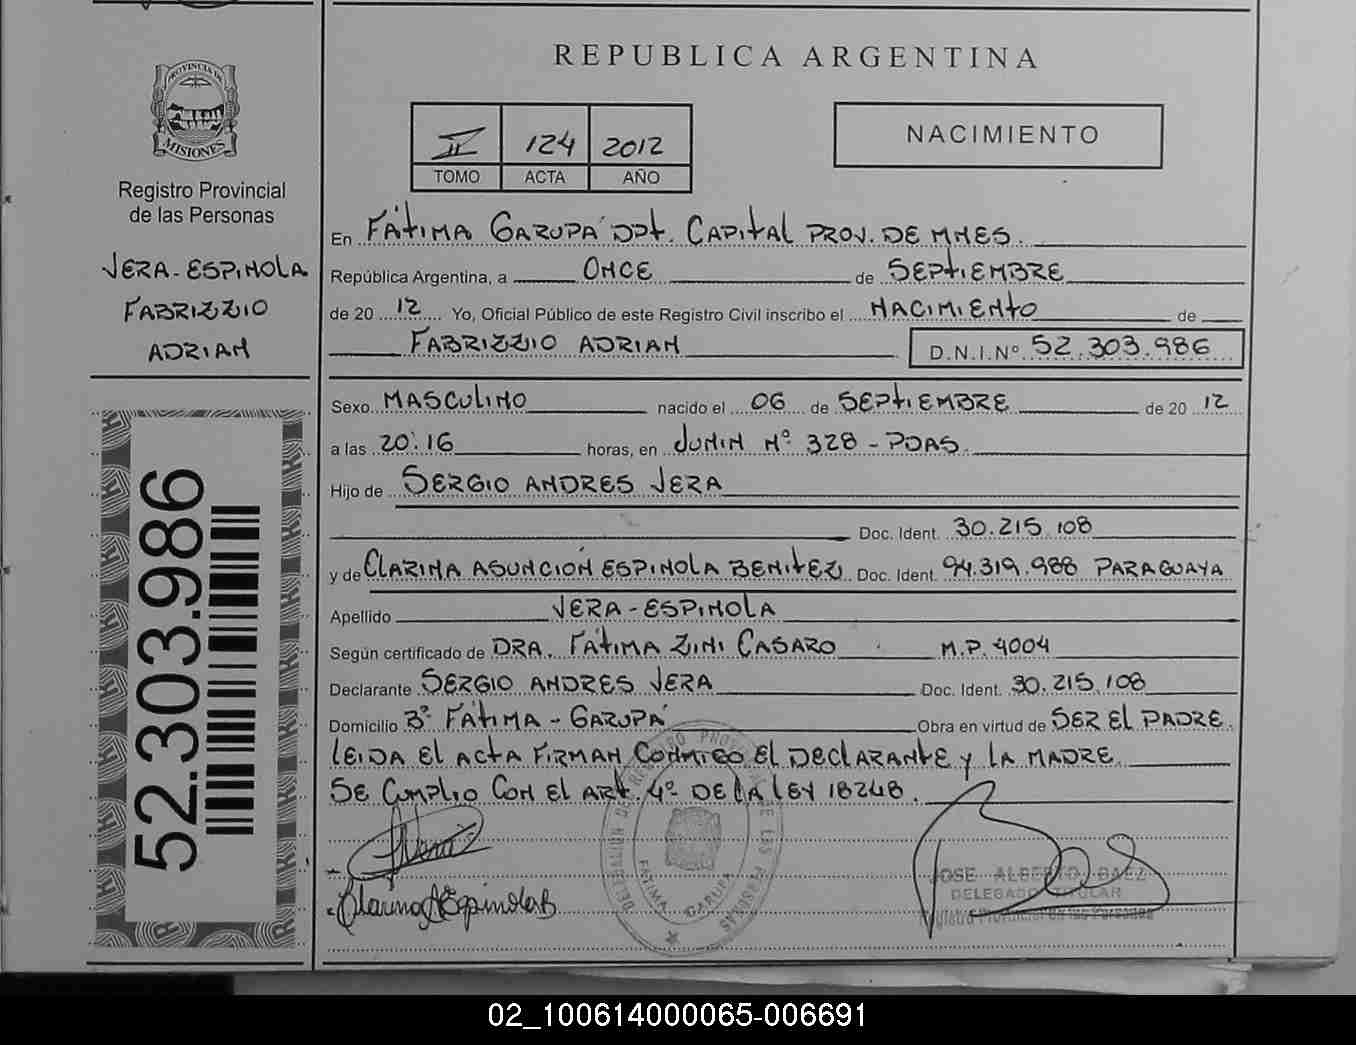 REPUBLICA ARGENTINA
PROVINCIA DE
MISIONES
Registro Provincial
de las Personas
VERA-ESPINOLA
FABRIZZIO
ADRIAN
52.303.986
II 124 2012
TOMO ACTA AÑO
NACIMIENTO
En FÁTIMA GARUPÁ DPT. CAPITAL PROV. DE MNES.
República Argentina, a ONCE de SEPTIEMBRE
de 20 12 Yo, Oficial Público de este Registro Civil inscribo el NACIMIENTO de
FABRIZZIO ADRIAN D.N.I.Nº 52.303.986
Sexo MASCULINO nacido el 06 de SEPTIEMBRE de 20 12
a las 20:16 horas, en JUNIN Nº 328 - PDAS.
Hijo de SERGIO ANDRES VERA
Doc. Ident. 30.215.108
y de CLARINA ASUNCIÓN ESPINOLA BENITEZ Doc. Ident. 94.319.988 PARAGUAYA
Apellido VERA-ESPINOLA
Según certificado de DRA. FÁTIMA ZINI CASARO M.P. 4004
Declarante SERGIO ANDRES VERA Doc. Ident. 30.215.108
Domicilio Bº FÁTIMA - GARUPÁ Obra en virtud de SER EL PADRE.
LEIDA EL ACTA FIRMAN CONMIGO EL DECLARANTE Y LA MADRE.
SE CUMPLIO CON EL ART. 4º DE LA LEY 18248.
DELEGACION DEL REGISTRO PROVINCIAL DE LAS PERSONAS
FATIMA GARUPA
Vera
Clarina A Espinola B
JOSE ALBERTO BAEZ
DELEGADO TITULAR
Registro Provincial de las Personas
02_100614000065-006691